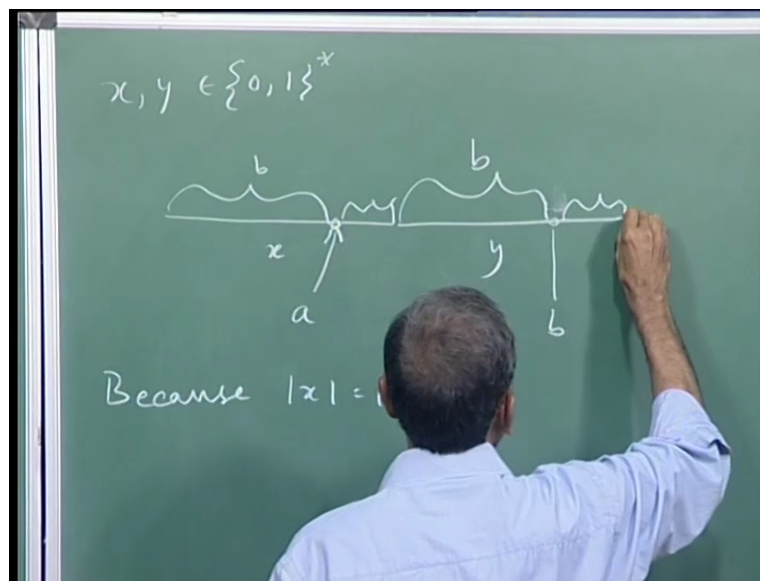 x, y ∈ {0, 1}*
b b
x y
a b
Because |x| =